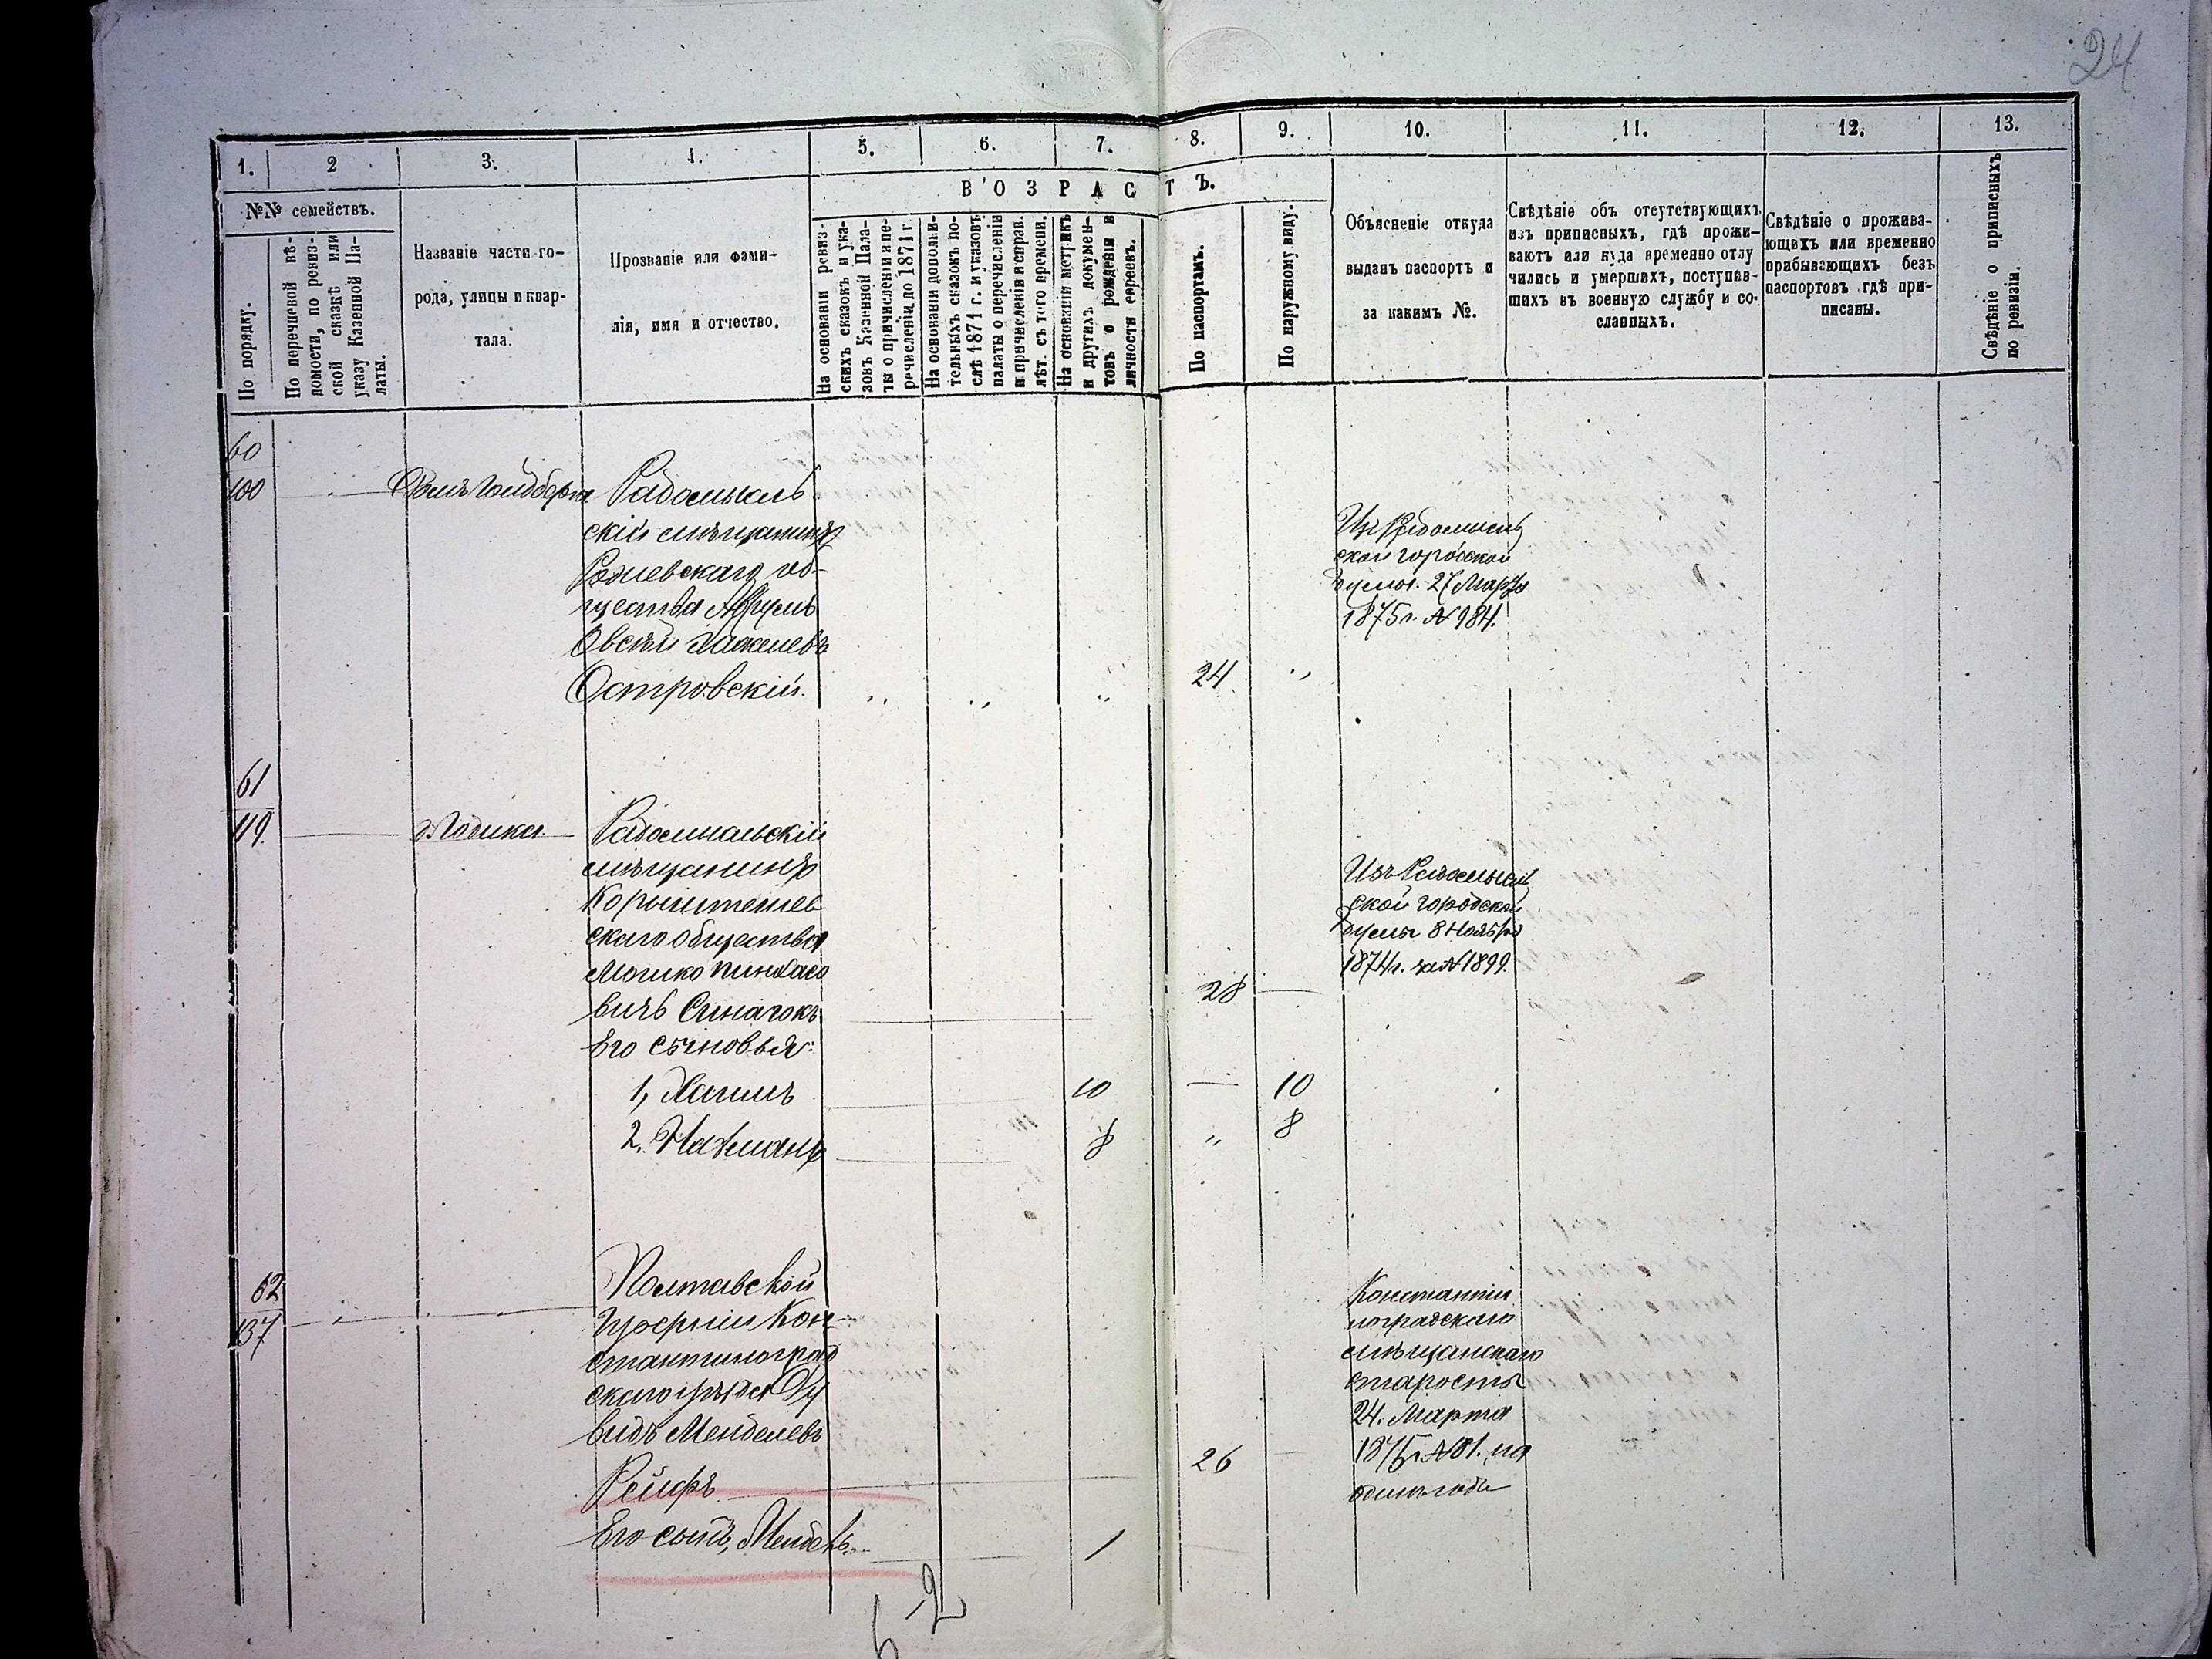 24
1. 2 3. 4. 5. 6. 7. 8. 9. 10. 11. 12. 13.
№№ семействъ.
ВОЗРАСТЪ.
По порядку.
По перечневой вѣ-
домости, по ревиз-
ской сказкѣ или
указу Казенной Па-
латы.
Названіе части го-
рода, улицы и квар-
тала.
Прозваніе или фами-
лія, имя и отчество.
На основаніи ревиз-
скихъ сказокъ и ука-
зовъ Казенной Пала-
ты о причисленіи и пе-
речисленіи до 1871 г.
На основаніи дополни-
тельныхъ сказокъ по-
слѣ 1871 г. и указовъ
палаты о перечисленіи
и причисленіи и справ.
лѣт. съ того времени.
На основаніи метрикъ
и другихъ докумен-
товъ о рожденіи и
личности евреевъ.
По паспортамъ.
По наружному виду.
Объясненіе откуда
выданъ паспортъ и
за какимъ №.
Свѣдѣніе объ отсутствующихъ
изъ приписныхъ, гдѣ прожи-
ваютъ или куда временно отлу
чились и умершихъ, поступив-
шихъ въ военную службу и со-
сланныхъ.
Свѣдѣніе о прожива-
ющихъ или временно
прибывающихъ безъ
паспортовъ гдѣ при-
писаны.
Свѣдѣніе о приписныхъ
по ревизіи.
60
100
Домъ
Радомысль
скій мѣщанинъ
об-
щества
Островскій.
24
Изъ Радомысль
ской городской
думы. 27 Марта
1875 г. № 984.
61
119.
Радомысльскій
мѣщанинъ
Коростышев
скаго общества
Мошко Пинхасо
вичъ Синагокъ
28
Его сыновья:
1, Хаимъ 10 10
2. Нахманъ 8 " 8
Изъ Радомысль
ской городской
думы 8 Ноября
1874 г. за № 1899.
62
137
Полтавской
Губерніи Кон-
стантиноград
скаго уѣзда Ду
видъ Менделевъ
Рейфъ
26
Его сынъ, Мендель. 1
Константи
ноградскаго
мѣщанскаго
старосты
24. Марта
1875 г. № 81. на
одинъ годъ
5-2